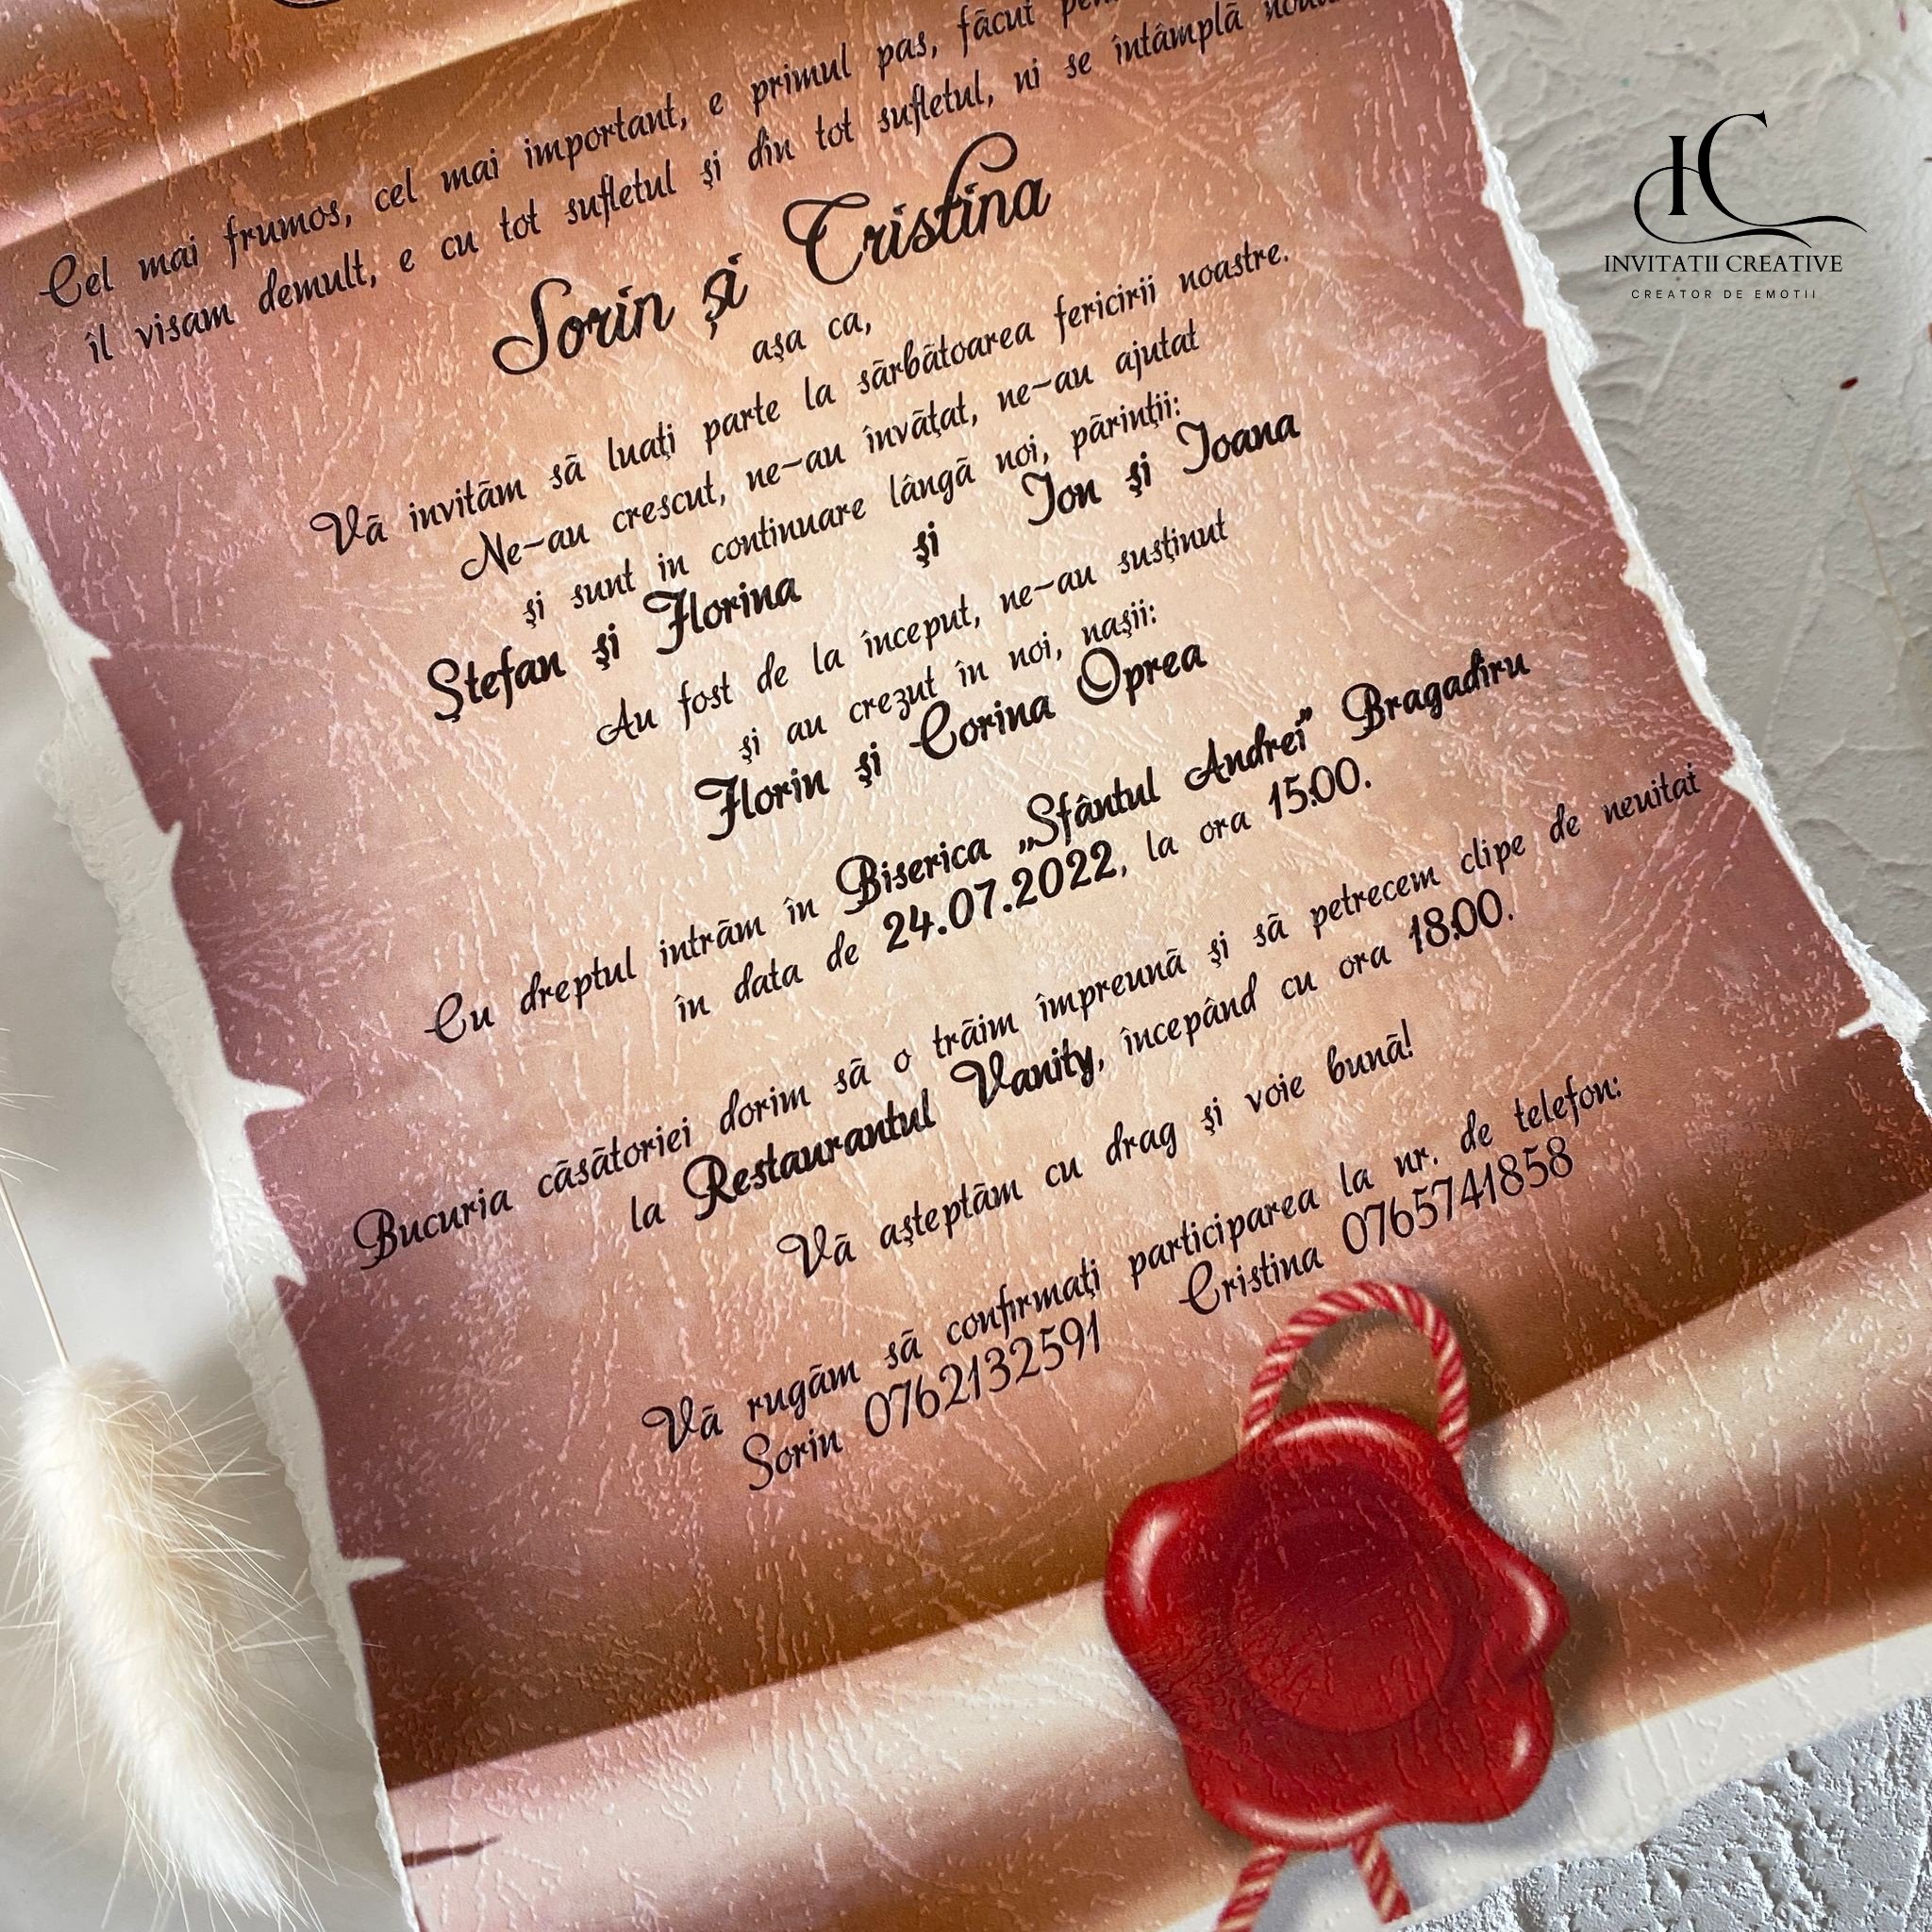 Cel mai frumos, cel mai important, e primul pas, făcut
îl visam demult, e cu tot sufletul şi din tot sufletul, ni se întâmplă
Sorin şi Cristina
aşa ca,
Vă invităm să luaţi parte la sărbătoarea fericirii noastre.
Ne-au crescut, ne-au învăţat, ne-au ajutat
şi sunt in continuare lângă noi, părinţii:
Ştefan şi Florina şi Ion şi Ioana
Au fost de la început, ne-au susţinut
şi au crezut în noi, naşii:
Florin şi Corina Oprea
Cu dreptul intrăm în Biserica „Sfântul Andrei” Bragadiru
în data de 24.07.2022, la ora 15:00.
Bucuria căsătoriei dorim să o trăim împreună şi să petrecem clipe de neuitat
la Restaurantul Vanity, începând cu ora 18:00.
Vă aşteptăm cu drag şi voie bună!
Vă rugăm să confirmaţi participarea la nr. de telefon:
Sorin 0762132591 Cristina 0765741858
IC
INVITATII CREATIVE
CREATOR DE EMOTII